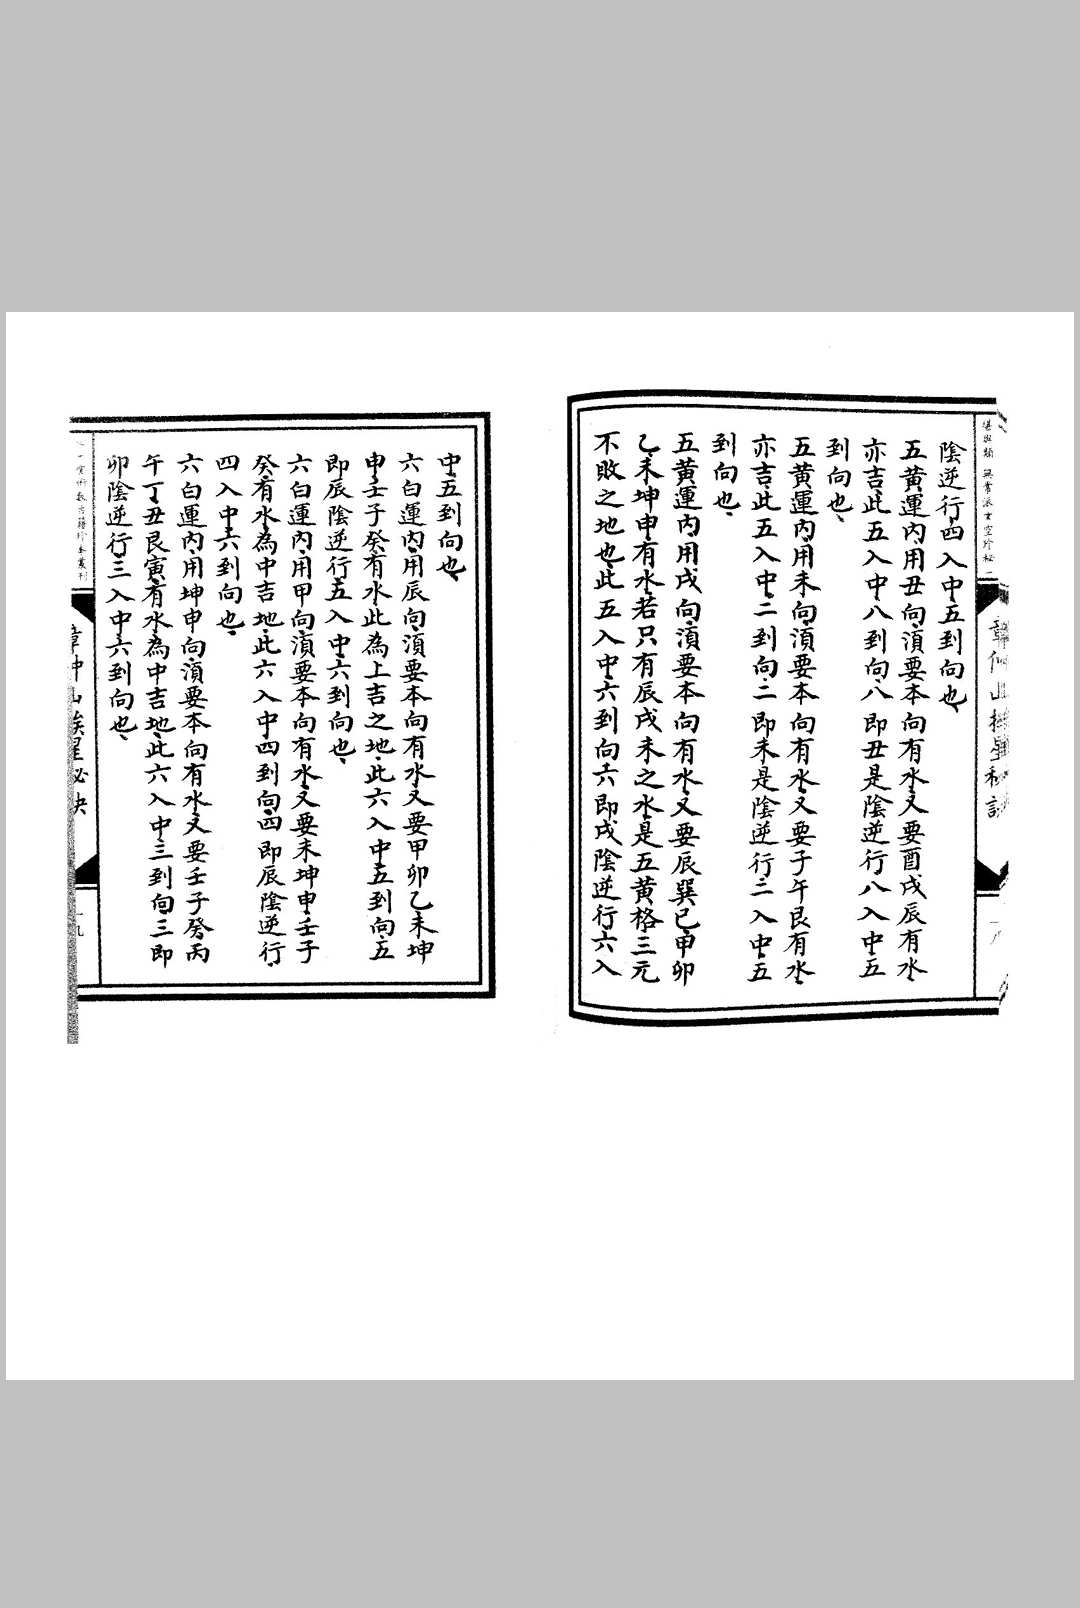 堪輿類 無常派玄空珍秘 二
章仲山挨星秘訣
一八
陰逆行四入中五到向也
五黃運內用丑向湏要本向有水又要酉戌辰有水
亦吉此五入中八到向八即丑是陰逆行八入中五
到向也
五黃運內用未向湏要本向有水又要子午艮有水
亦吉此五入中二到向二即未是陰逆行二入中五
到向也
五黃運內用戌向湏要本向有水又要辰巽巳甲卯
乙未坤申有水若只有辰戌未之水是五黃格三元
不敗之地也此五入中六到向六即戌陰逆行六入
中五到向也
六白運內用辰向湏要本向有水又要甲卯乙未坤
申壬子癸有水此為上吉之地此六入中五到向五
即辰陰逆行五入中六到向也
六白運內用甲向湏要本向有水又要未坤申壬子
癸有水為中吉地此六入中四到向四即辰陰逆行
四入中六到向也
六白運內用坤申向湏要本向有水又要壬子癸丙
午丁丑艮寅有水為中吉地此六入中三到向三即
卯陰逆行三入中六到向也
心一堂術數古籍珍本叢刊
章仲山挨星秘訣
一九